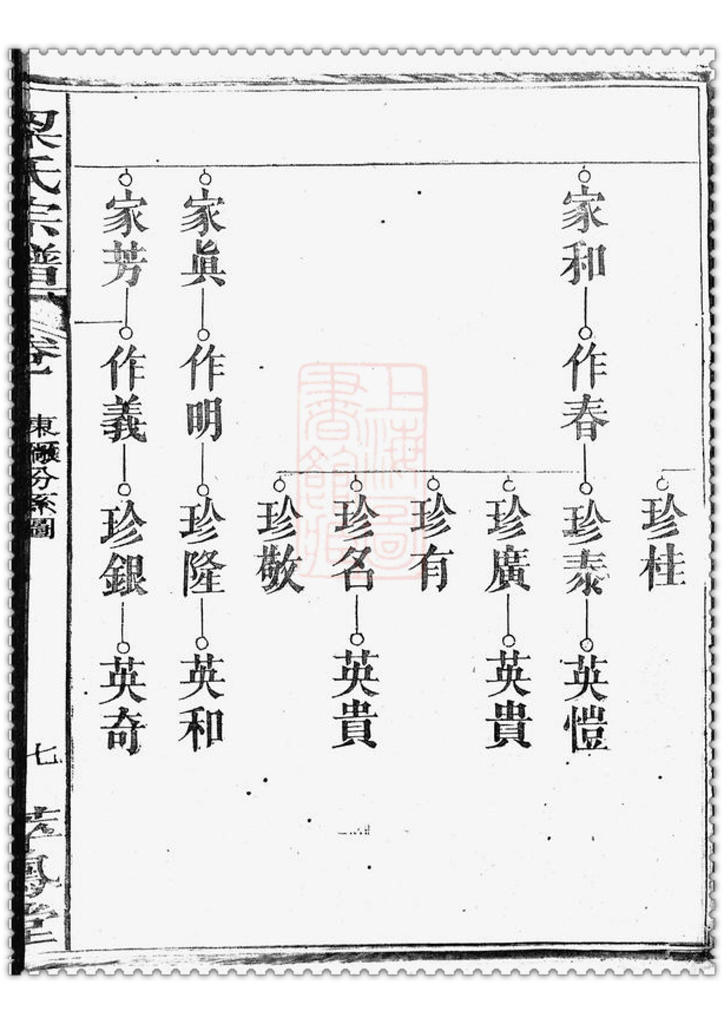 珍桂
家和 作春 珍泰 英愷
珍廣 英貴
珍有
珍名 英貴
珍敬
家眞 作明 珍隆 英和
家芳 作義 珍銀 英奇
梁氏宗譜
卷一
分系圖
七
上海圖書館